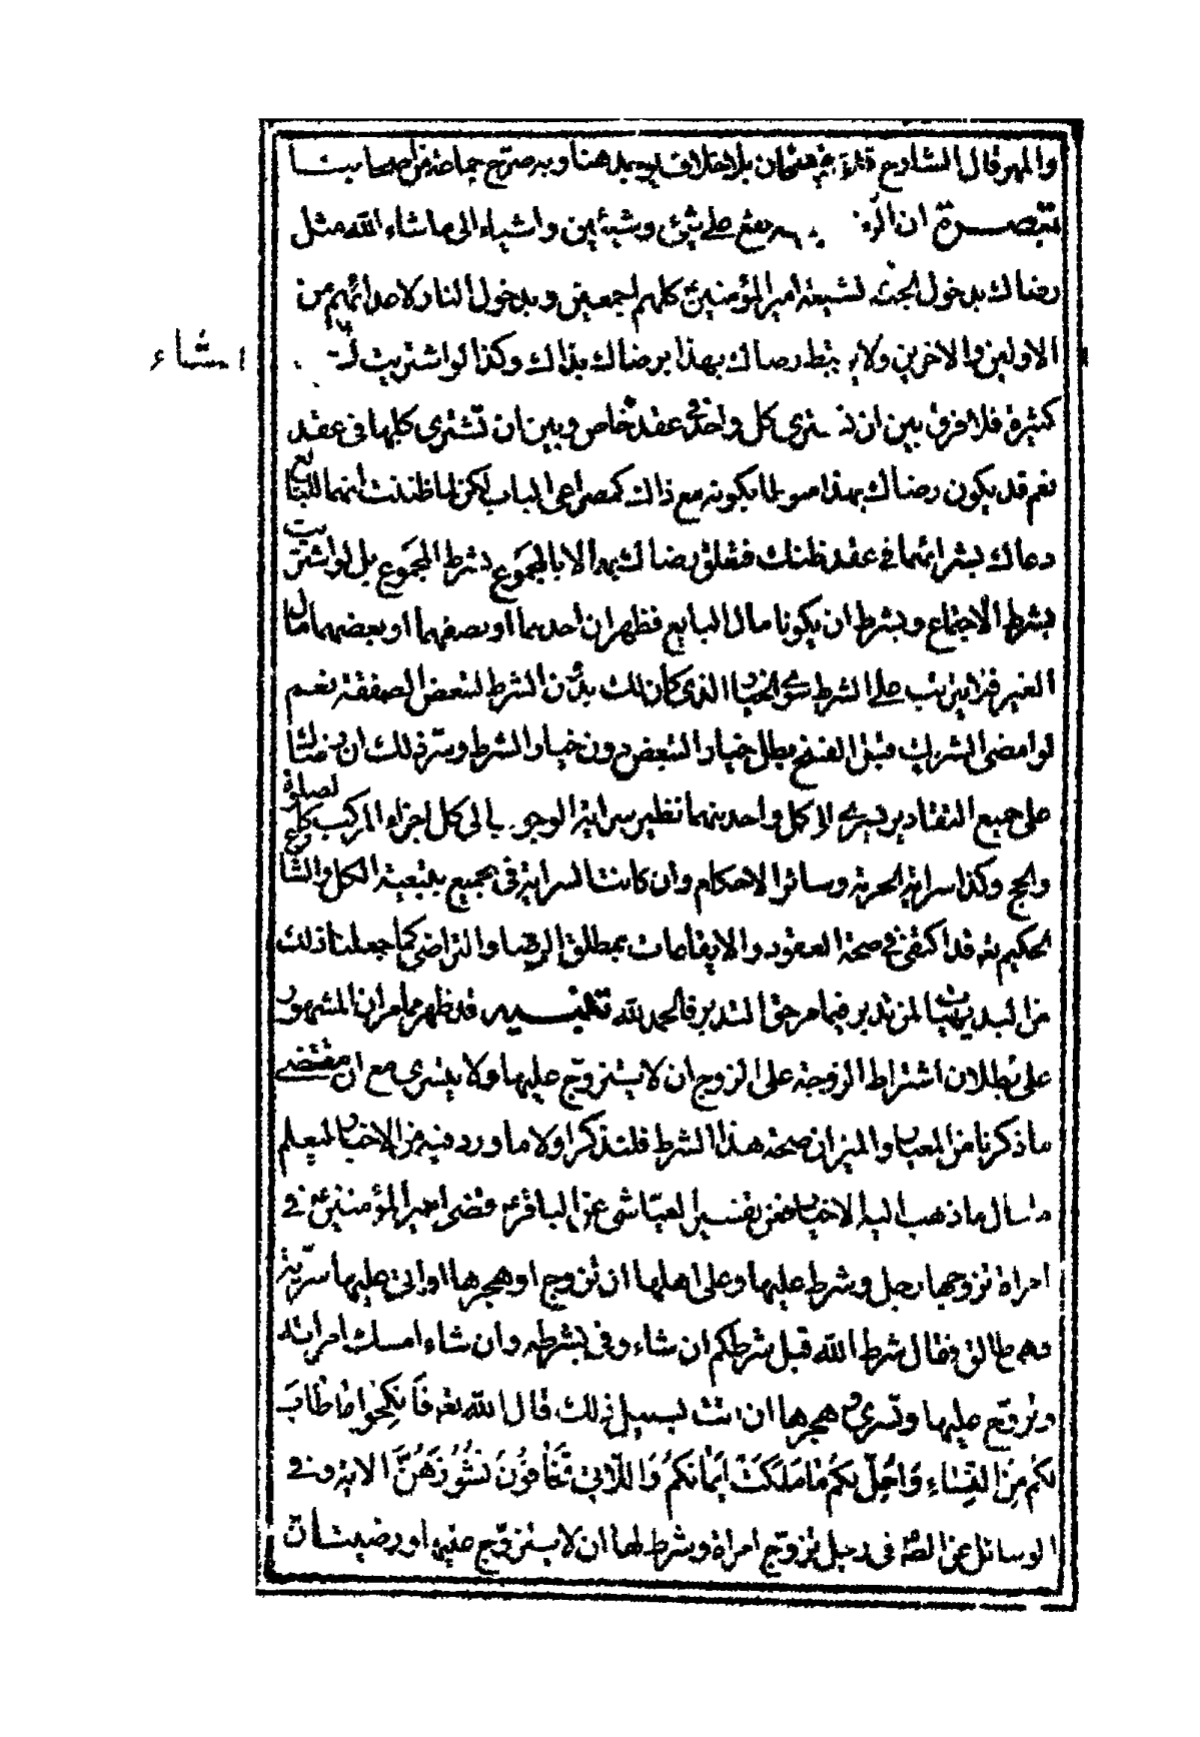 والمهر قال الشارح بلا خلاف هنا وبه صرّح جماعة من اصحابنا
تبصرة ان الرضا يقع على شئ وشيئين واشياء الى ما شاء الله مثل
رضاك بدخول الجنة لشيعة امير المؤمنينؑ كلهم اجمعين وبدخول النار لاعدائهم من
الاولين والاخرين ولا يرتبط رضاك بهذا برضاك بذاك وكذا لو اشتريت
اشياء
كثيرة فلا فرق بين ان تشترى كل واحد فى عقد خاص وبين ان تشترى كلها فى عقد
نعم قد يكون رضاك بهذا منوطا بكونه مع ذاك كمصراعى الباب لكن لما ظننت انهما للبايع
دعاك بشرائهما فى عقد ظنك فتعلق رضاك بهما لا بالمجموع بشرط المجموع بل لو اشتريت
بشرط الاجتماع وبشرط ان يكونا مال البايع فظهر ان احدهما او نصفهما او بعضهما مال
الغير فلا يترتب على الشرط سوى الخيار الذى كان لك بدون الشرط لتبعض الصفقة نعم
لو امضى الشريك قبل الفسخ بطل خيار التبعض دون خيار الشرط وسرّ ذلك ان رضاك
على جميع التقادير يسرى الى كل واحد منهما نظير سراية الوجوب الى كل اجزاء المركب كالصلوة
والحج وكذا سراية الحرية وسائر الاحكام وان كانت السراية فى الجميع بتبعية الكل والشارع
الحكيم تعه قد اكتفى فى صحة العقود والايقاعات بمطلق الرضا والتراضى كما جعلنا ذلك
من البديهيات لمن تدبر فيما مر حق التدبر فالحمد لله تنبيه قد ظهر مما مر ان المشهور
على بطلان اشتراط الزوجة على الزوج ان لا يتزوج عليها ولا يتسرى مع ان مقتضى
ما ذكرنا من المعيار والميزان صحة هذا الشرط فلنذكر اولا ما ورد فيه من الاخبار ليعلم
ما سأل ما ذهب اليه الاخيار فعن تفسير العياشى عن الباقرؑ قضى امير المؤمنينؑ فى
امراة تزوجها رجل وشرط عليها وعلى اهلها ان تزوج او هجرها او اتى عليها سرّية
فهى طالق فقال شرط الله قبل شرطكم ان شاء وفى بشرطه وان شاء امسك امراته
وتزوّج عليها وتسرى وهجرها ان اتت بسبيل ذلك قال الله تعه فَانْكِحُوا مَا طَابَ
لَكُمْ مِنَ النِّسَاءِ وَاُحِلَّ لَكُمْ مَا مَلَكَتْ اَيْمَانُكُمْ وَاللَّاتِى تَخَافُونَ نُشُوزَهُنَّ الاية وفى
الوسائل عن الصؑ فى رجل تزوّج امراة وشرط لها ان لا يتزوّج عليها ورضيت ان